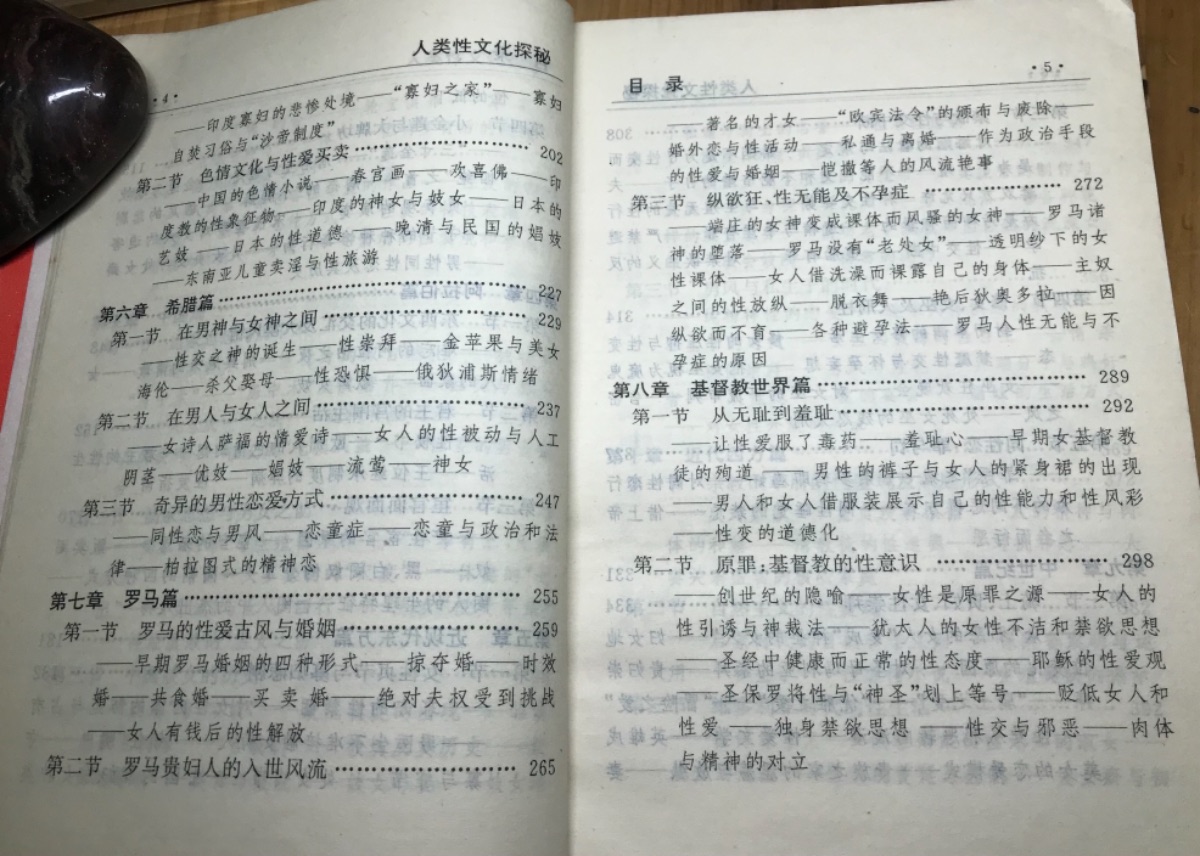 人类性文化探秘
·4·
——印度寡妇的悲惨处境——“寡妇之家”——寡妇
自焚习俗与“沙帝制度”
第二节 色情文化与性爱买卖 ………… 202
——中国的色情小说——春宫画——欢喜佛——印
度教的性象征物——印度的神女与妓女——日本的
艺妓——日本的性道德——晚清与民国的娼妓
——东南亚儿童卖淫与性旅游
第六章 希腊篇 ………… 227
第一节 在男神与女神之间 ………… 229
——性交之神的诞生——性崇拜——金苹果与美女
海伦——杀父娶母——性恐惧——俄狄浦斯情绪
第二节 在男人与女人之间 ………… 237
——女诗人萨福的情爱诗——女人的性被动与人工
阴茎——优妓——娼妓——流莺——神女
第三节 奇异的男性恋爱方式 ………… 247
——同性恋与男风——恋童症——恋童与政治和法
律——柏拉图式的精神恋
第七章 罗马篇 ………… 255
第一节 罗马的性爱古风与婚姻 ………… 259
——早期罗马婚姻的四种形式——掠夺婚——时效
婚——共食婚——买卖婚——绝对夫权受到挑战
——女人有钱后的性解放
第二节 罗马贵妇人的入世风流 ………… 265
目录
·5·
——著名的才女——“欧宾法令”的颁布与废除——
婚外恋与性活动——私通与离婚——作为政治手段
的性爱与婚姻——恺撒等人的风流艳事
第三节 纵欲狂、性无能及不孕症 ………… 272
——端庄的女神变成裸体而风骚的女神——罗马诸
神的堕落——罗马没有“老处女”——透明纱下的女
性裸体——女人借洗澡而裸露自己的身体——主奴
之间的性放纵——脱衣舞——艳后狄奥多拉——因
纵欲而不育——各种避孕法——罗马人性无能与不
孕症的原因
第八章 基督教世界篇 ………… 289
第一节 从无耻到羞耻 ………… 292
——让性爱服了毒药——羞耻心——早期女基督教
徒的殉道——男性的裤子与女人的紧身裙的出现
——男人和女人借服装展示自己的性能力和性风彩
——性变的道德化
第二节 原罪:基督教的性意识 ………… 298
——创世纪的隐喻——女性是原罪之源——女人的
性引诱与神裁法——犹太人的女性不洁和禁欲思想
——圣经中健康而正常的性态度——耶稣的性爱观
——圣保罗将性与“神圣”划上等号——贬低女人和
性爱——独身禁欲思想——性交与邪恶——肉体
与精神的对立